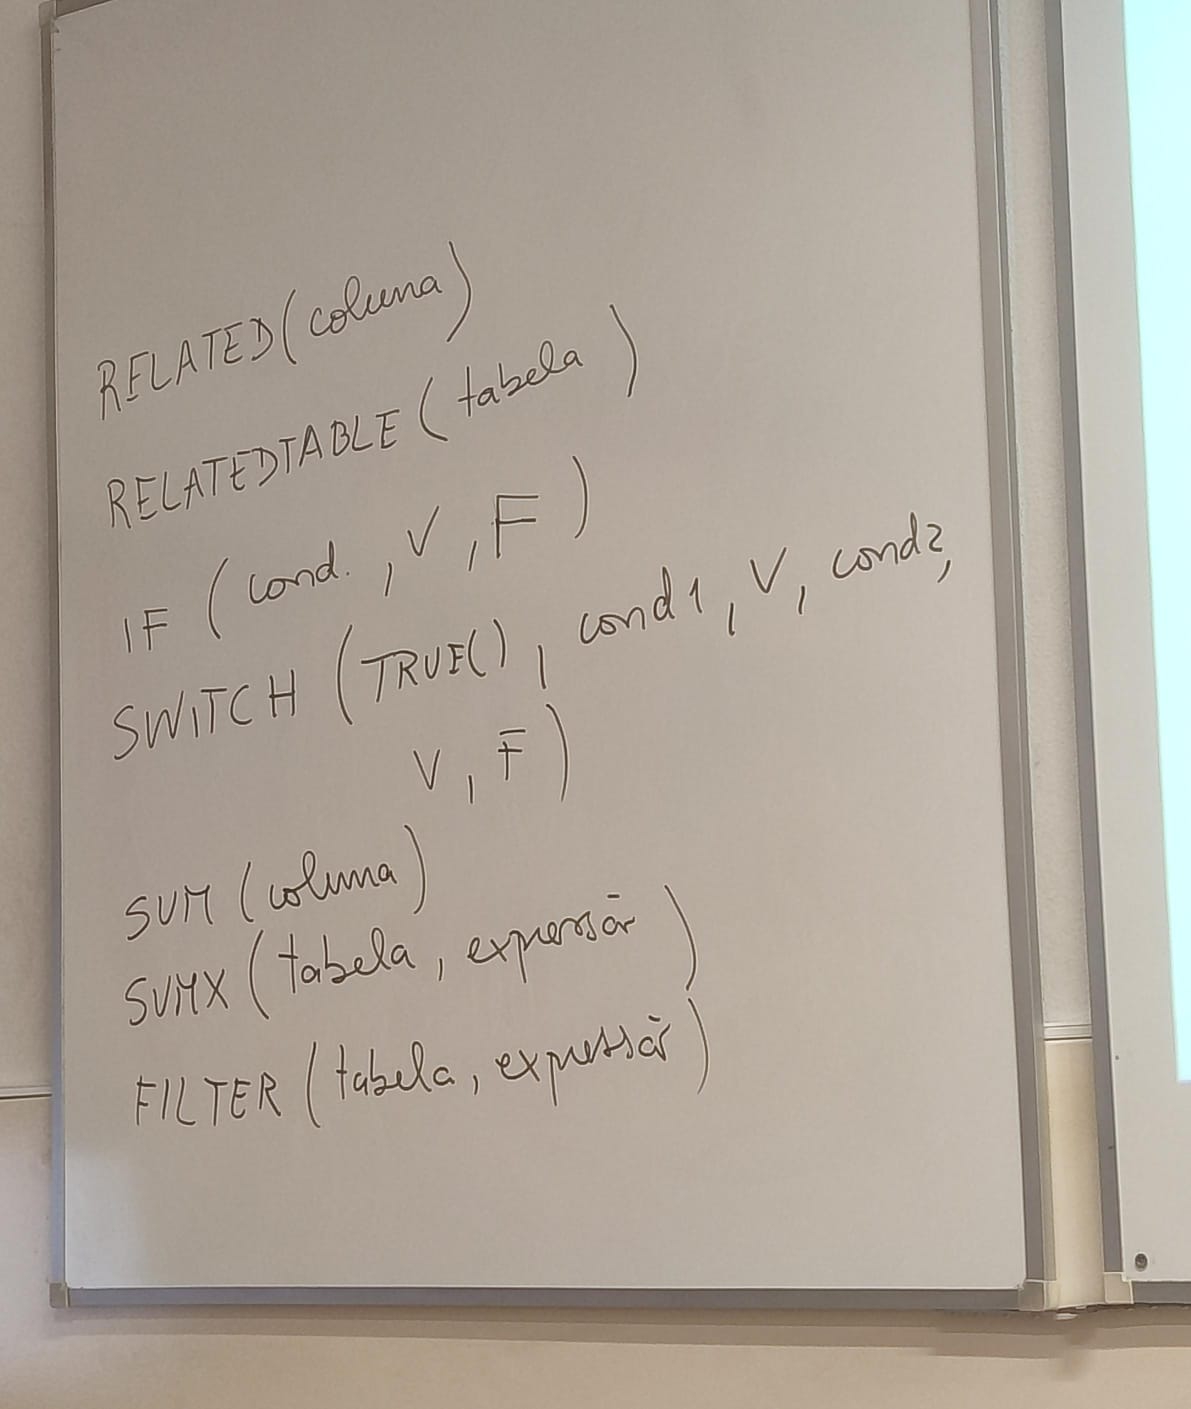 RELATED(coluna)
RELATEDTABLE (tabela)
IF (cond., V, F)
SWITCH (TRUE(), cond1, V, cond2,
V, F)
SUM (coluna)
SUMX (tabela, expressão)
FILTER (tabela, expressão)